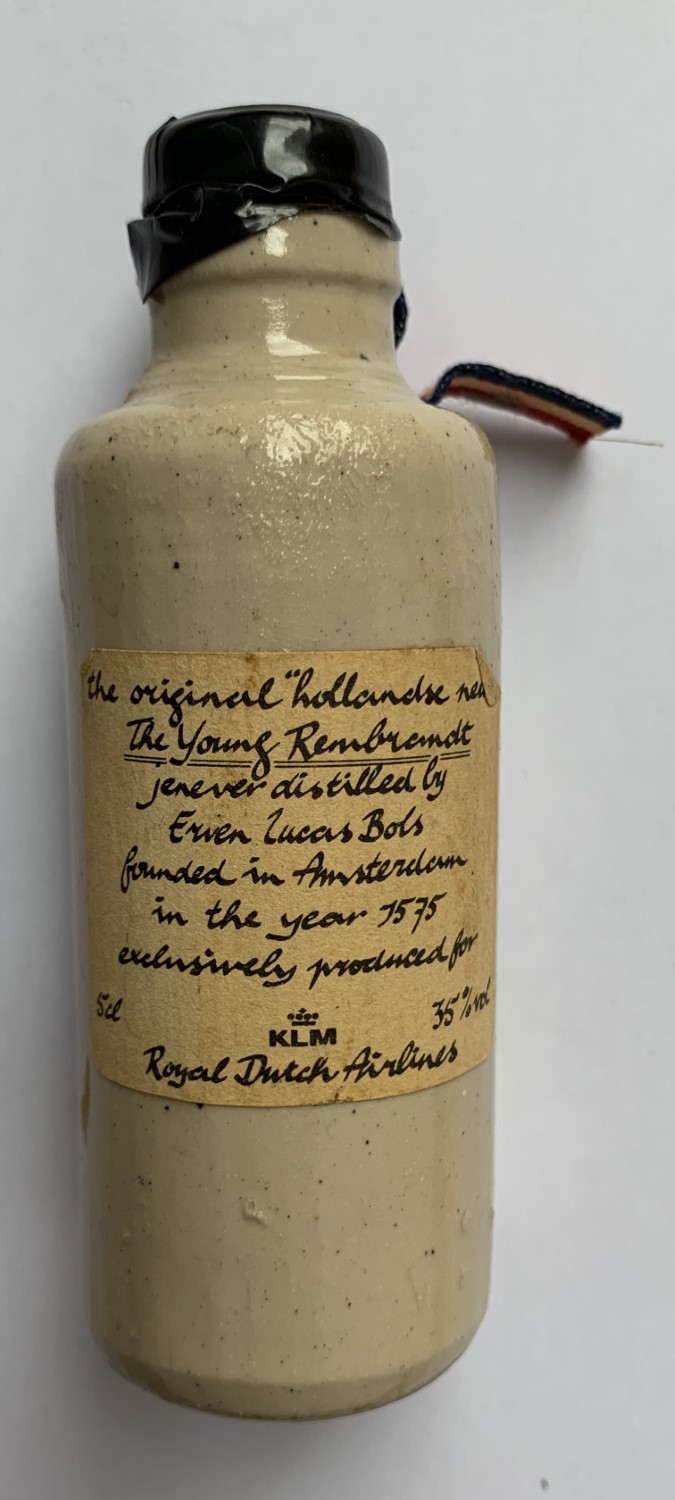 the original "hollandse neu
The Young Rembrandt
jenever distilled by
Erven Lucas Bols
founded in Amsterdam
in the year 1575
exclusively produced for
5cl 35%vol
KLM
Royal Dutch Airlines